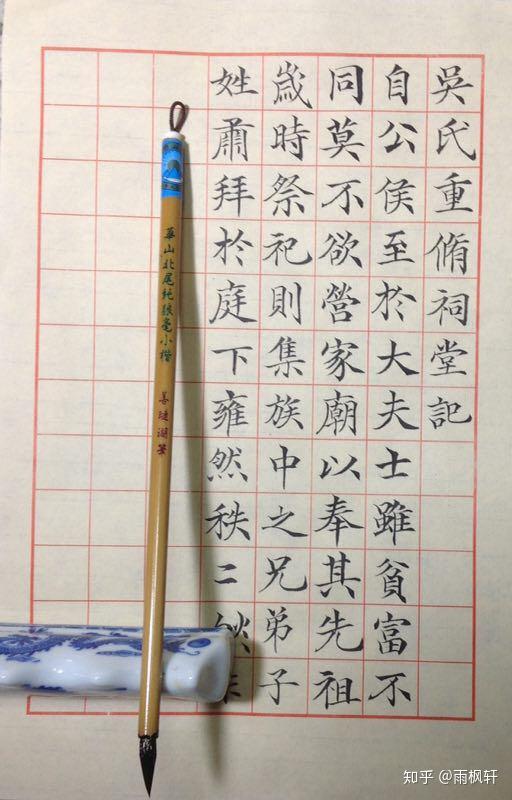 吳氏重脩祠堂記
自公侯至於大夫士雖貧富不
同莫不欲營家廟以奉其先祖
歲時祭祀則集族中之兄弟子
姓肅拜於庭下雍然秩二
華山北尾純狼毫小楷 善璉湖筆
知乎 @雨枫轩